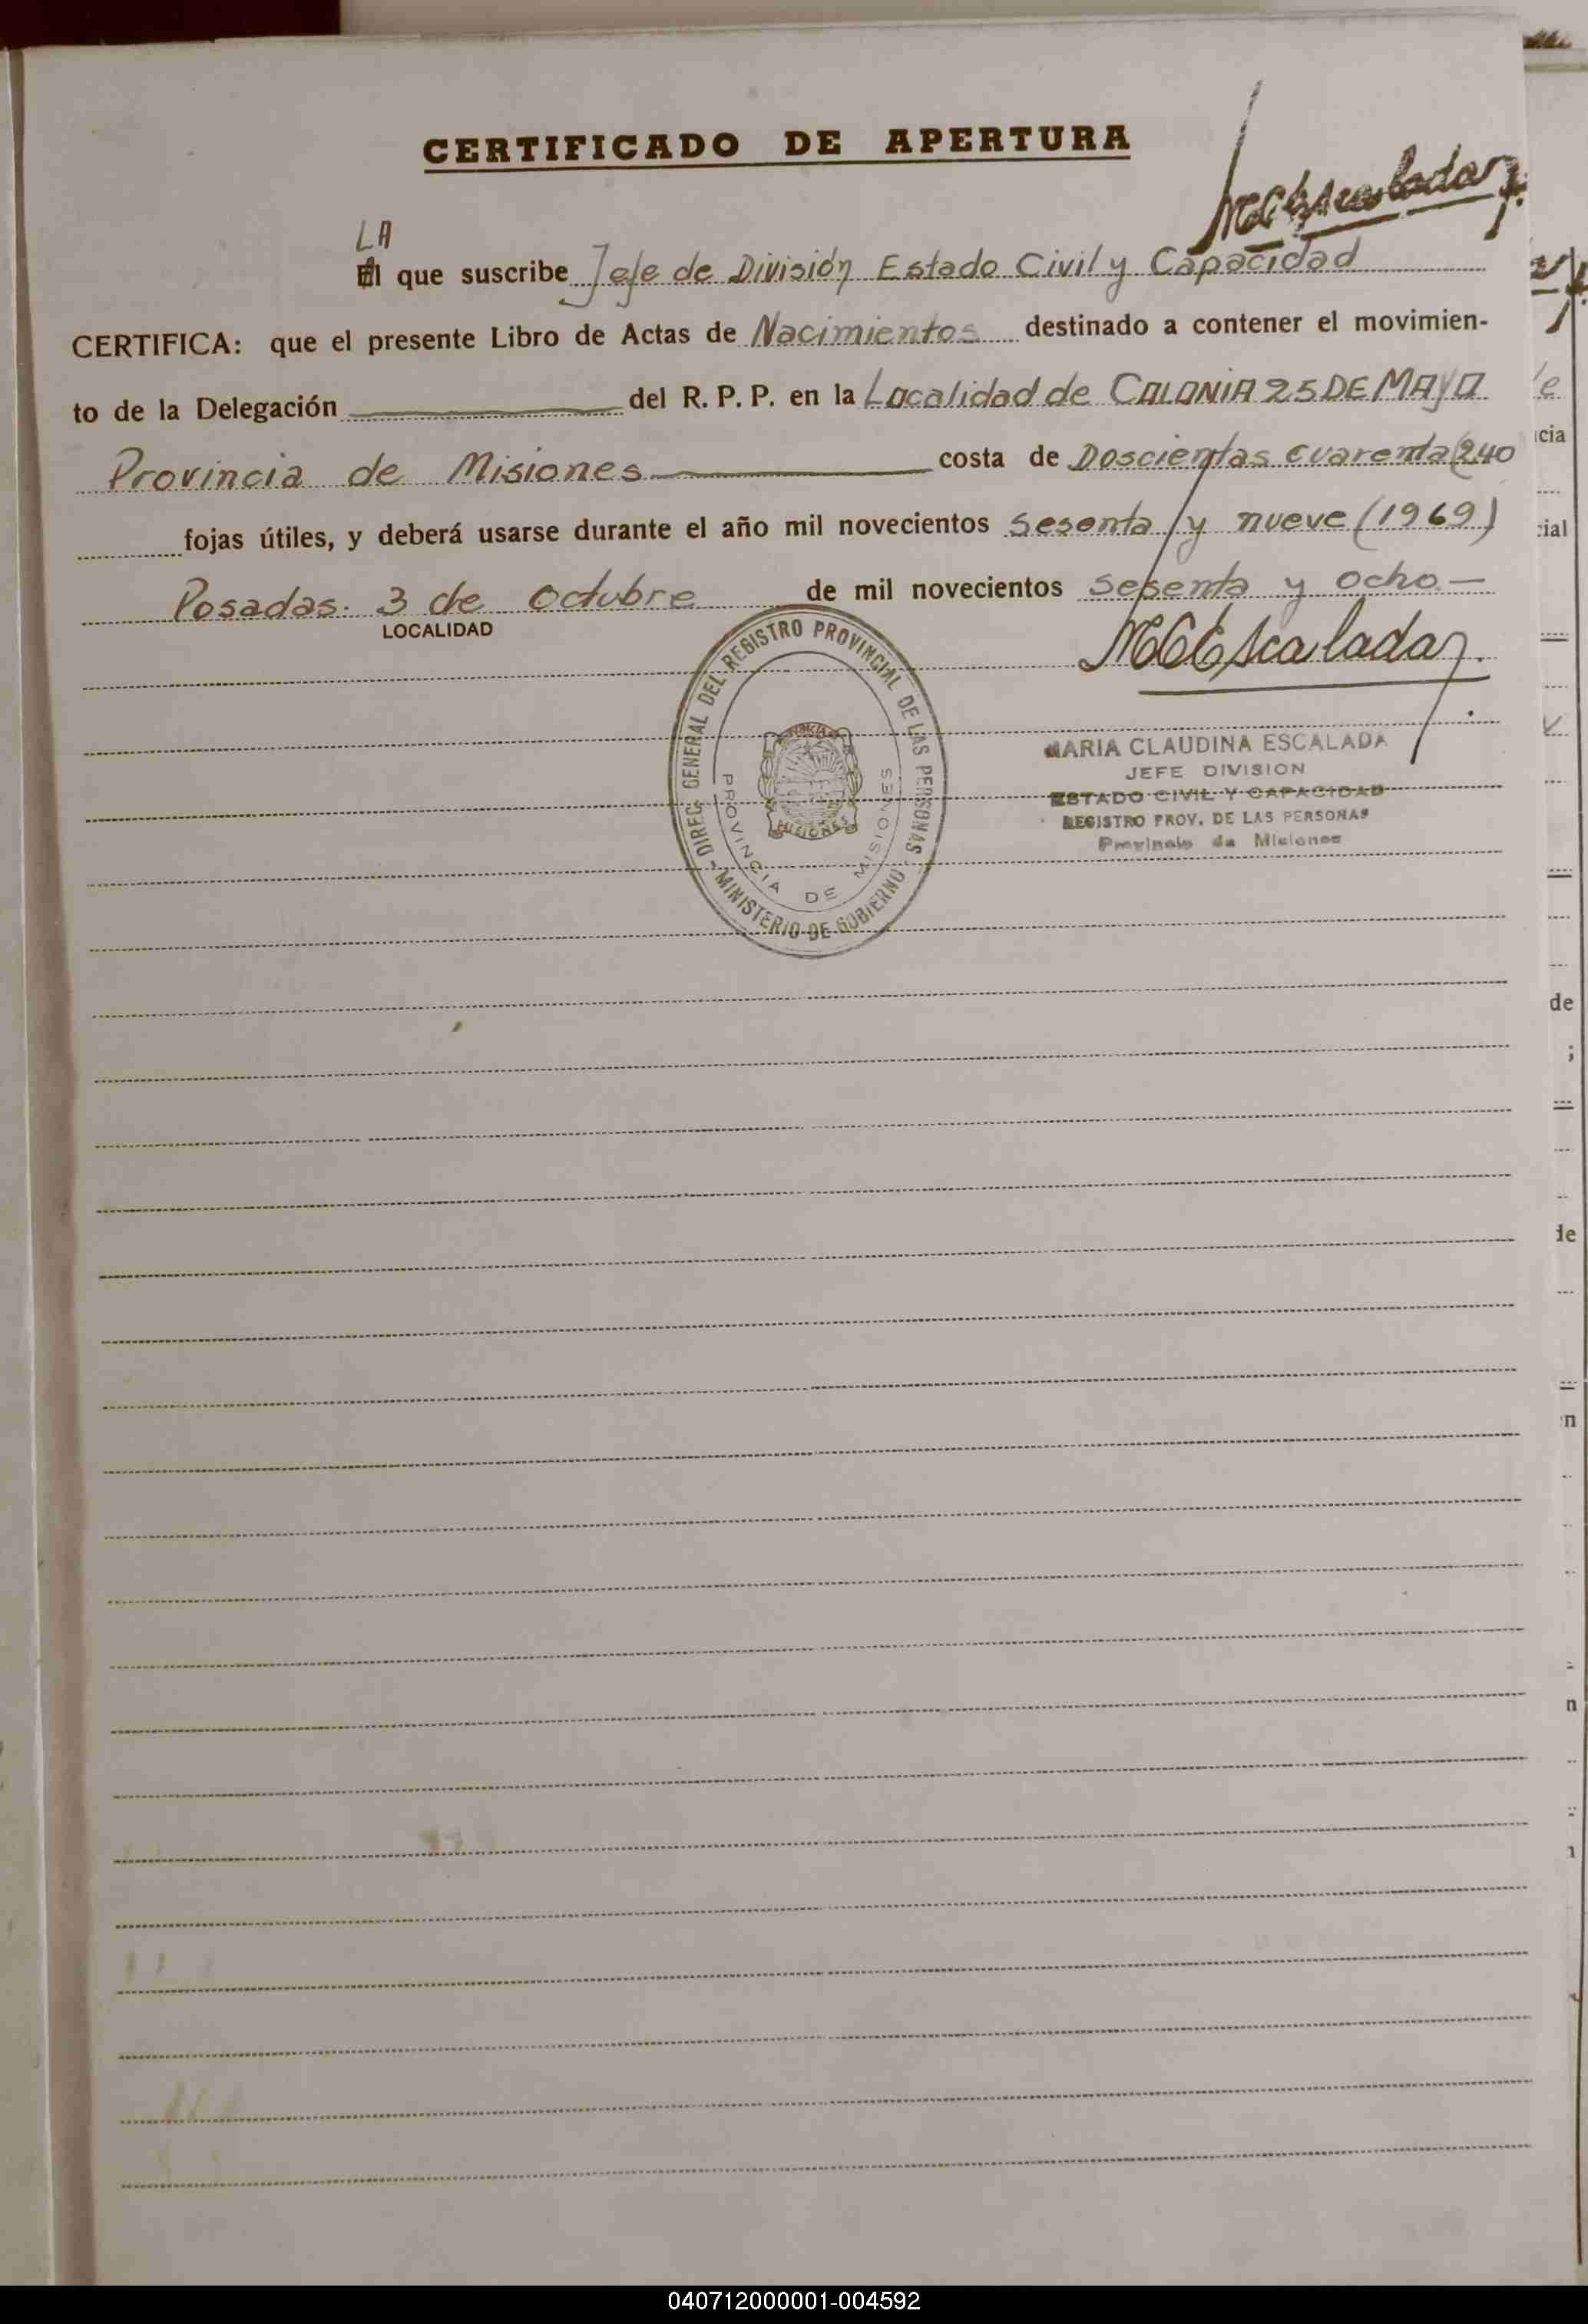 CERTIFICADO DE APERTURA
MCEscalada
LA
El que suscribe Jefe de División Estado Civil y Capacidad
CERTIFICA: que el presente Libro de Actas de Nacimientos destinado a contener el movimien-
to de la Delegación del R. P. P. en la Localidad de COLONIA 25 DE MAYO
Provincia de Misiones costa de Doscientas cuarenta (240
fojas útiles, y deberá usarse durante el año mil novecientos sesenta y nueve (1969)
Posadas. 3 de octubre de mil novecientos sesenta y ocho.—
LOCALIDAD
MCEscalada
DIREC. GENERAL DEL REGISTRO PROVINCIAL DE LAS PERSONAS
- MINISTERIO DE GOBIERNO -
PROVINCIA DE MISIONES
MISIONES
MARIA CLAUDINA ESCALADA
JEFE DIVISION
ESTADO CIVIL Y CAPACIDAD
REGISTRO PROV. DE LAS PERSONAS
Provincia de Misiones
cia
cial
de
;
de
n
n
040712000001-004592